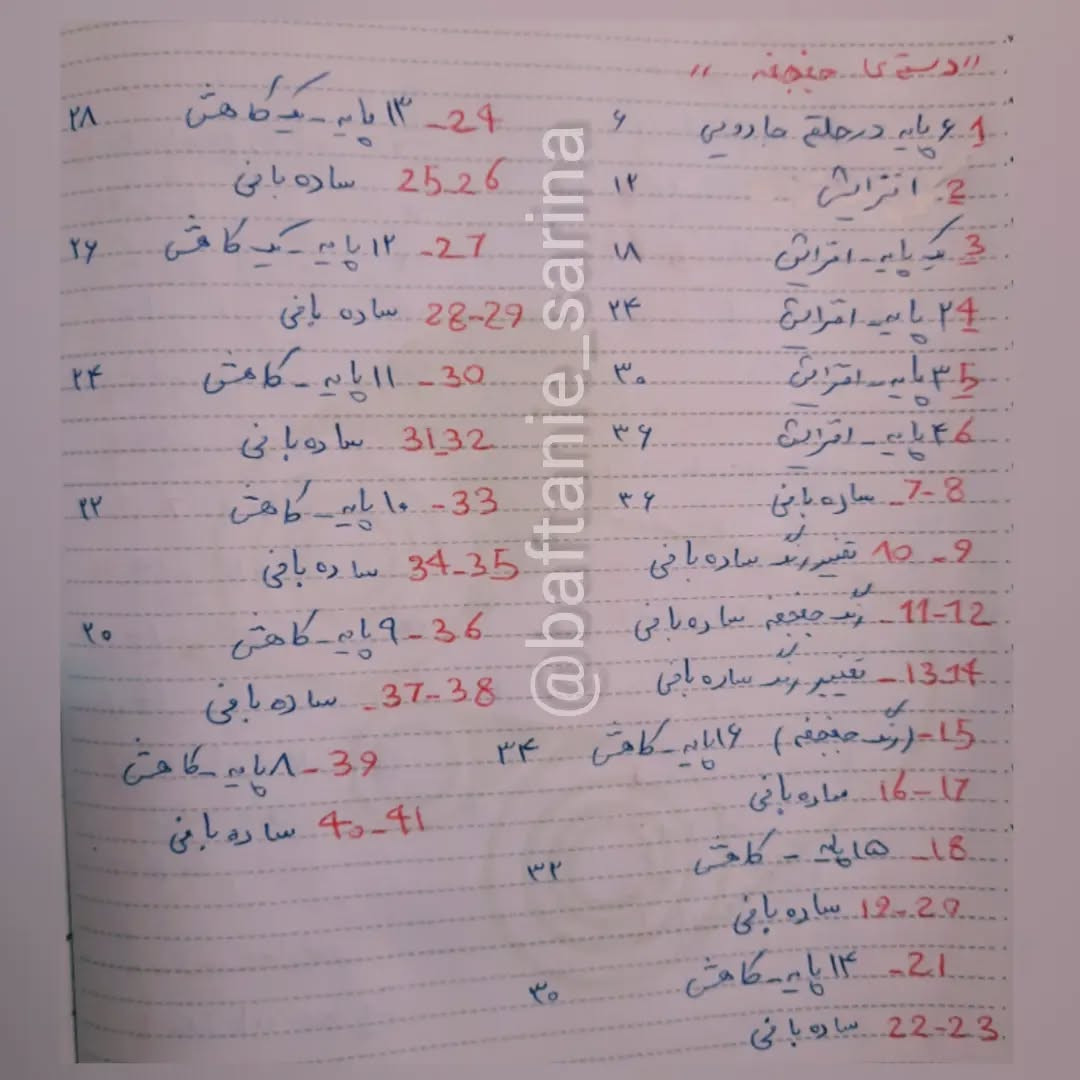 "دسته ی جغجغه"
1. ۶ پایه در حلقه جادویی ۶
2. افزایش ۱۲
3. یک پایه - افزایش ۱۸
4. ۲ پایه - افزایش ۲۴
5. ۳ پایه - افزایش ۳۰
6. ۴ پایه - افزایش ۳۶
7-8 - ساده بافی ۳۶
9 - 10 تغییر رنگ ساده بافی
11-12 - رنگ جغجغه ساده بافی
13-14 - تغییر رنگ ساده بافی
15 - (رنگ جغجغه) ۱۶ پایه - کاهش ۳۴
16-17 ساده بافی
18 - ۱۵ پایه - کاهش ۳۲
19-20 ساده بافی
21 - ۱۴ پایه - کاهش ۳۰
22-23 ساده بافی
24 - ۱۳ پایه - یک کاهش ۲۸
25-26 ساده بافی
27 - ۱۲ پایه - یک کاهش ۲۶
28-29 ساده بافی
30 - ۱۱ پایه - کاهش ۲۴
31-32 ساده بافی
33 - ۱۰ پایه - کاهش ۲۲
34-35 ساده بافی
36 - ۹ پایه - کاهش ۲۰
37-38 - ساده بافی
39 - ۸ پایه - کاهش
40-41 ساده بافی
@baftanie_sarina